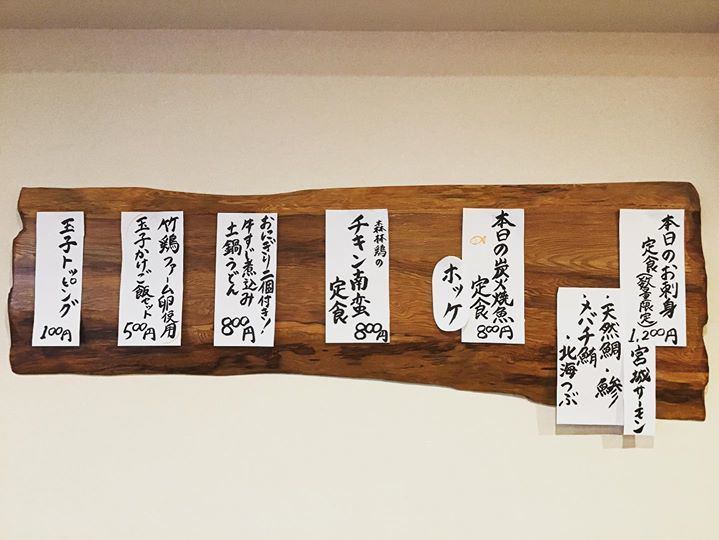 本日のお刺身
定食(数量限定)
1,200円
宮城サーモン
・天然鯛・鰺
・メバチ鮪
・北海つぶ
本日の炭火焼魚
定食
800円
ホッケ
森林鶏の
チキン南蛮
定食
800円
おにぎり二個付き!
牛すじ煮込み
土鍋うどん
800円
竹鶏ファーム卵使用
玉子かけご飯セット
500円
玉子トッピング
100円